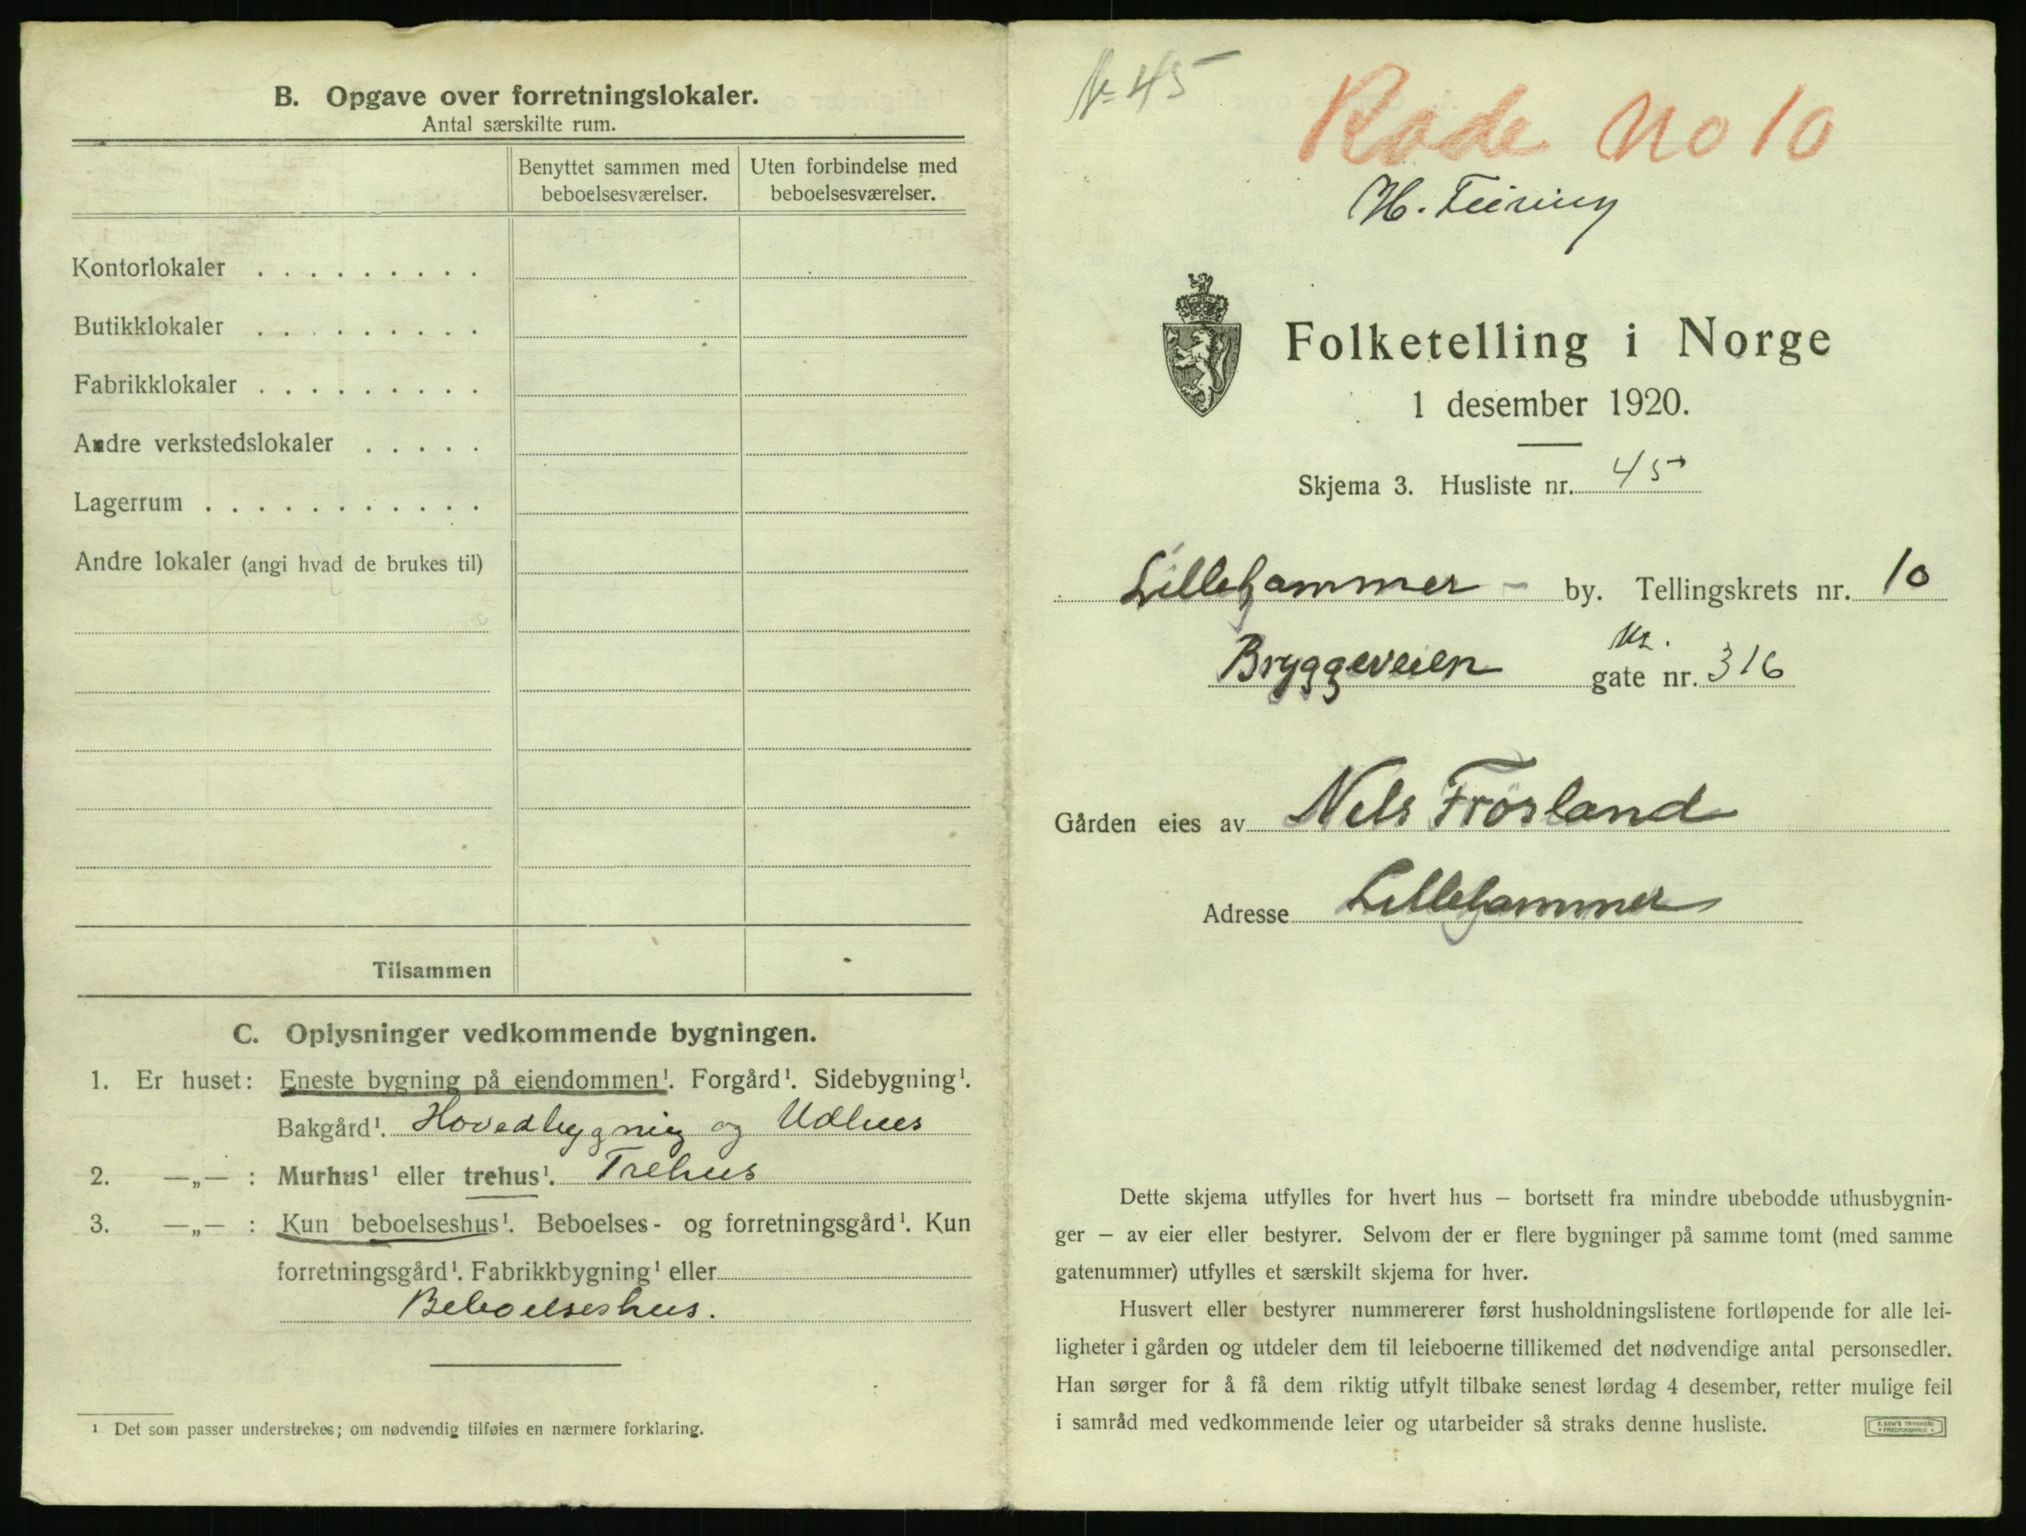 B. Opgave over forretningslokaler.
Antal særskilte rum.
Benyttet sammen med beboelsesværelser.
Uten forbindelse med beboelsesværelser.
Kontorlokaler . . . . . . . . .
Butikklokaler . . . . . . . . .
Fabrikklokaler . . . . . . . . .
Andre verkstedslokaler . . . . .
Lagerrum . . . . . . . . . . .
Andre lokaler (angi hvad de brukes til)
Tilsammen
C. Oplysninger vedkommende bygningen.
1. Er huset: Eneste bygning på eiendommen¹. Forgård¹. Sidebygning¹.
Bakgård¹. Hovedbygning og Udhus
2. —„— : Murhus¹ eller trehus¹. Trehus
3. —„— : Kun beboelseshus¹. Beboelses- og forretningsgård¹. Kun
forretningsgård¹. Fabrikkbygning¹ eller
Beboelseshus.
¹ Det som passer understrekes; om nødvendig tilføies en nærmere forklaring.
№ 45
Rode No 10
H. Feiring
Folketelling i Norge
1 desember 1920.
Skjema 3. Husliste nr. 45
Lillehammer - by. Tellingskrets nr. 10
Nr.
Bryggeveien gate nr. 316
Gården eies av Nels Frösland
Adresse Lillehammer
Dette skjema utfylles for hvert hus — bortsett fra mindre ubebodde uthusbygnin-
ger — av eier eller bestyrer. Selvom der er flere bygninger på samme tomt (med samme
gatenummer) utfylles et særskilt skjema for hver.
Husvert eller bestyrer nummererer først husholdningslistene fortløpende for alle lei-
ligheter i gården og utdeler dem til leieboerne tillikemed det nødvendige antal personsedler.
Han sørger for å få dem riktig utfylt tilbake senest lørdag 4 desember, retter mulige feil
i samråd med vedkommende leier og utarbeider så straks denne husliste.
E. SEM'S TRYKKERI
• FREDRIKSHALD •